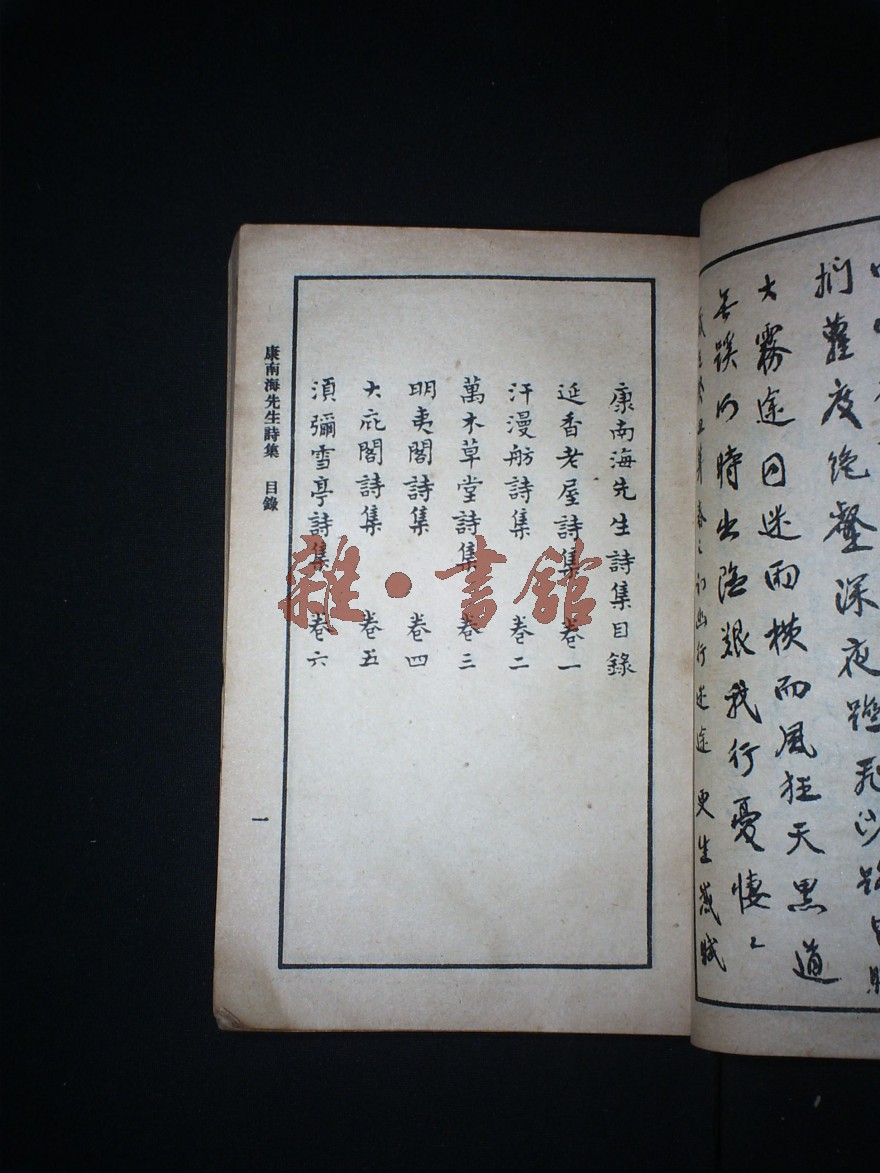 捫蘿度絶壑深夜
大霧途因迷雨橫而風狂天黑道
時出險艱我行憂悽〻
行迷途 更生
康南海先生詩集目錄
延香老屋詩集 卷一
汗漫舫詩集 卷二
萬木草堂詩集 卷三
明夷閣詩集 卷四
大庇閣詩集 卷五
須彌雪亭詩集 卷六
康南海先生詩集 目錄
一
雜·書館